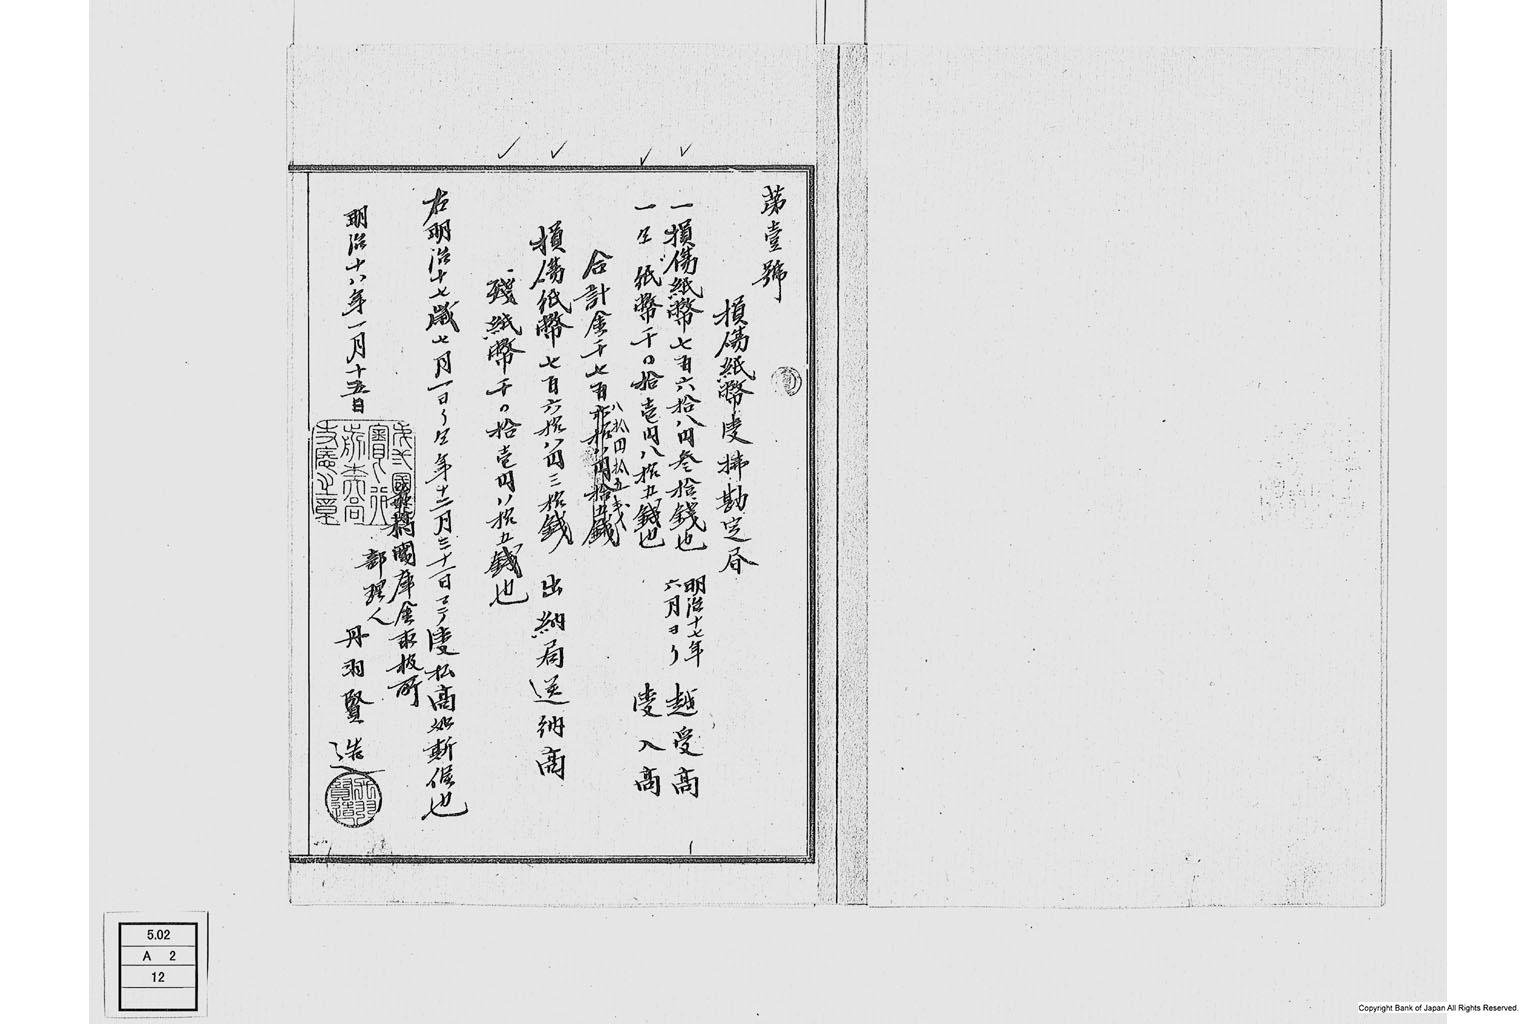 第壹號
損傷紙幣受拂勘定書
一損傷紙幣七百六拾八円叁拾錢也 明治十七年六月ヨリ 越受高
一仝 紙幣千〇拾壱円八拾五錢也 受入高
合計金千七百
八拾円拾五錢
損傷紙幣七百六拾八円三拾錢 出納局送納高
残紙幣千〇拾壱円八拾五錢也
右明治十七歳七月一日ヨリ仝年十二月三十一日マテ受払高如斯候也
明治十八年一月十五日
國庫金取扱所
部理人
丹羽賢造
5.02
A 2
12
Copyright Bank of Japan All Rights Reserved.